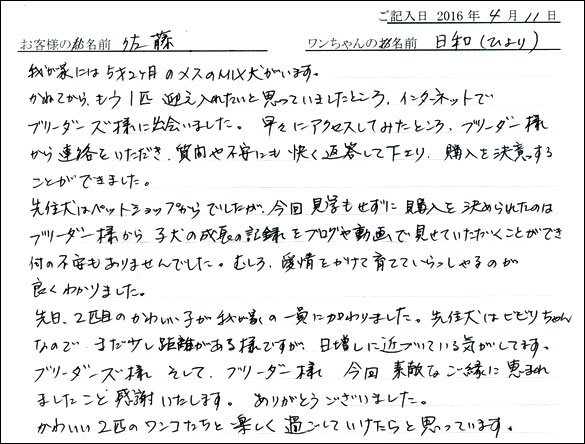 ご記入日 2016 年 4 月 11 日
お客様のお名前 佐藤 ワンちゃんのお名前 日和(ひより)
我が家には5才2ヶ月のメスのMIX犬がいます。
かねてから、もう1匹 迎え入れたいと思っていましたところ、インターネットで
ブリーダーズ様に出会いました。 早々にアクセスしてみたところ、ブリーダー様
から連絡をいただき、質問や不安にも快く返答して下さり、購入を決意する
ことができました。
先住犬はペットショップからでしたが、今回 見学もせずに購入を決められたのは
ブリーダー様から 子犬の成長の記録をブログや動画で見せていただくことができ
何の不安もありませんでした。むしろ、愛情をかけて育てていらっしゃるのが
良くわかりました。
先日、2匹目のかわいい子が我が家の一員に加わりました。先住犬はビビりちゃん
なので まだ少し距離がある様ですが、日増しに近づいている気がしてます。
ブリーダーズ様 そして、ブリーダー様 今回 素敵なご縁に恵まれ
ましたこと 感謝いたします。 ありがとうございました。
かわいい2匹のワンコたちと楽しく過ごしていけたらと思っています。